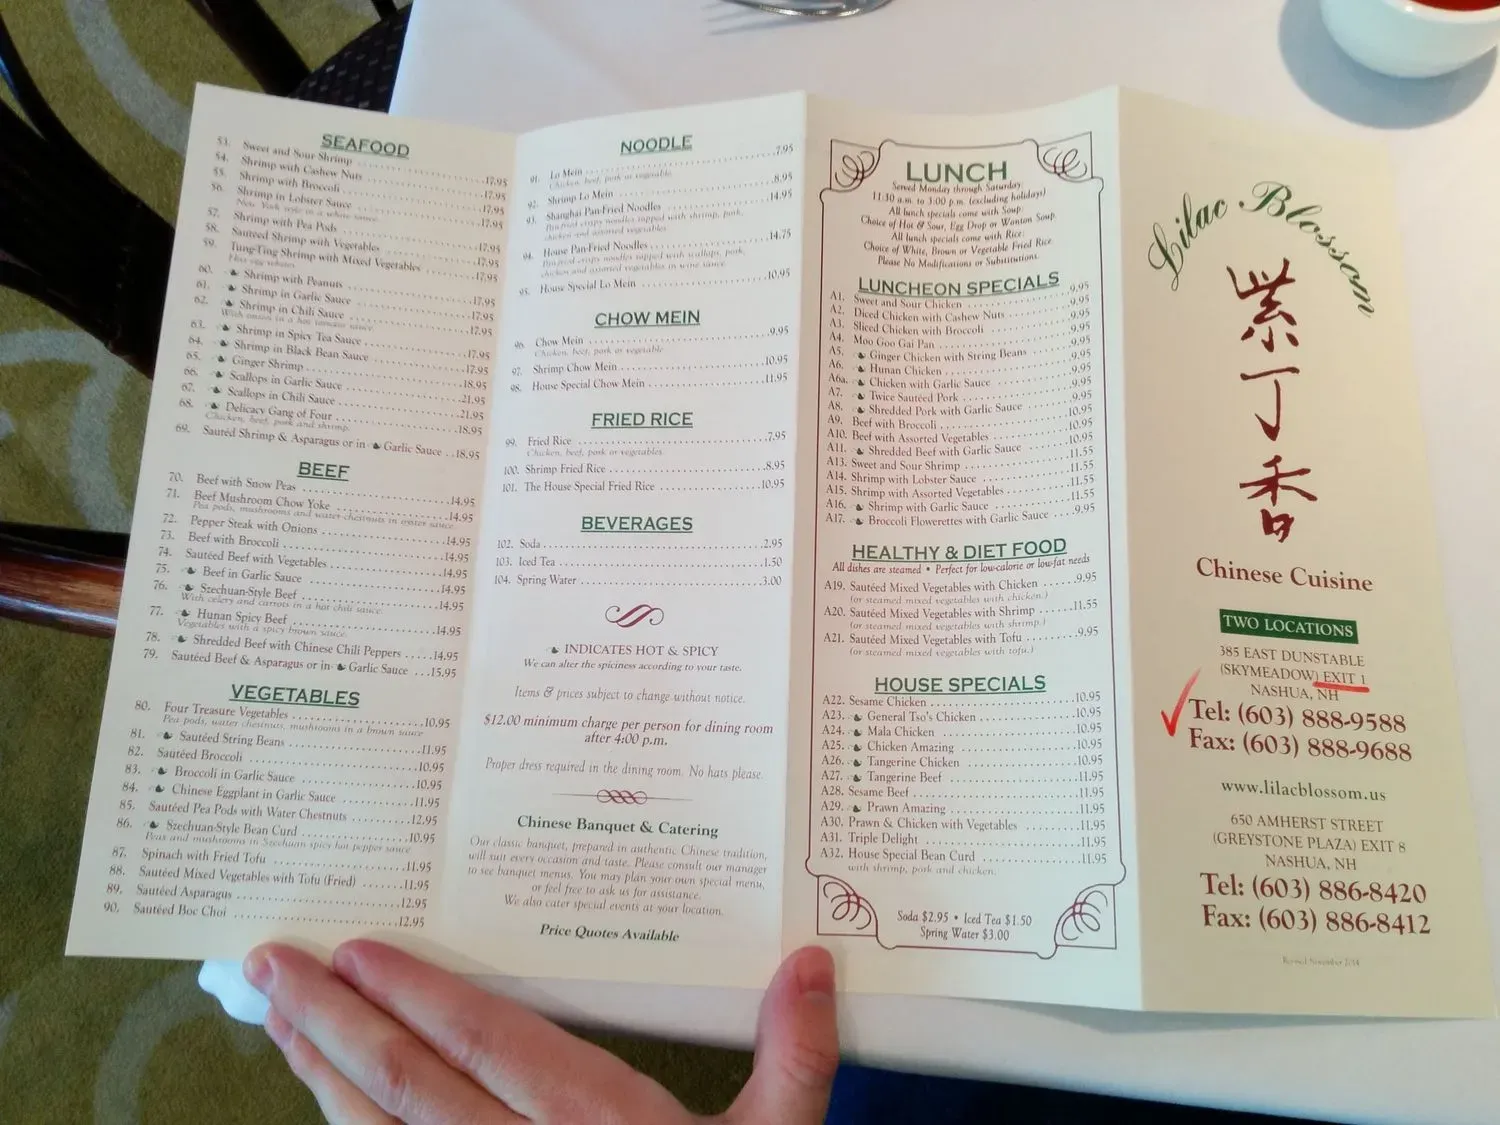 SEAFOOD
53. Sweet and Sour Shrimp ..... 17.95
54. Shrimp with Cashew Nuts ..... 17.95
55. Shrimp with Broccoli ..... 17.95
56. Shrimp in Lobster Sauce ..... 17.95
New York style in a white sauce.
57. Shrimp with Pea Pods ..... 17.95
58. Sautéed Shrimp with Vegetables ..... 17.95
59. Tung-Ting Shrimp with Mixed Vegetables ..... 17.95
60. Shrimp with Peanuts ..... 17.95
61. Shrimp in Garlic Sauce ..... 17.95
62. Shrimp in Chili Sauce ..... 17.95
With onions in a hot tomato sauce.
63. Shrimp in Spicy Tea Sauce ..... 17.95
64. Shrimp in Black Bean Sauce ..... 17.95
65. Ginger Shrimp ..... 18.95
66. Scallops in Garlic Sauce ..... 21.95
67. Scallops in Chili Sauce ..... 21.95
68. Delicacy Gang of Four ..... 18.95
Chicken, beef, pork and shrimp.
69. Sautéd Shrimp & Asparagus or in Garlic Sauce ..18.95
BEEF
70. Beef with Snow Peas ..... 14.95
71. Beef Mushroom Chow Yoke ..... 14.95
Pea pods, mushrooms and water-chestnuts in oyster sauce.
72. Pepper Steak with Onions ..... 14.95
73. Beef with Broccoli ..... 14.95
74. Sautéed Beef with Vegetables ..... 14.95
75. Beef in Garlic Sauce ..... 14.95
76. Szechuan-Style Beef ..... 14.95
With celery and carrots in a hot chili sauce.
77. Hunan Spicy Beef ..... 14.95
Vegetables with a spicy brown sauce.
78. Shredded Beef with Chinese Chili Peppers .....14.95
79. Sautéed Beef & Asparagus or in Garlic Sauce ...15.95
VEGETABLES
80. Four Treasure Vegetables ..... 10.95
Pea pods, water chestnuts, mushrooms in a brown sauce
81. Sautéed String Beans ..... 11.95
82. Sautéed Broccoli ..... 10.95
83. Broccoli in Garlic Sauce ..... 10.95
84. Chinese Eggplant in Garlic Sauce ..... 11.95
85. Sautéed Pea Pods with Water Chestnuts ..... 12.95
86. Szechuan-Style Bean Curd ..... 10.95
Peas and mushrooms in Szechuan spicy hot pepper sauce
87. Spinach with Fried Tofu ..... 11.95
88. Sautéed Mixed Vegetables with Tofu (Fried) ..... 11.95
89. Sautéed Asparagus ..... 12.95
90. Sautéed Boc Choi ..... 12.95
NOODLE
91. Lo Mein ..... 7.95
Chicken, beef, pork or vegetable.
92. Shrimp Lo Mein ..... 8.95
93. Shanghai Pan-Fried Noodles ..... 14.95
Pan-fried crispy noodles topped with shrimp, pork, chicken and assorted vegetables.
94. House Pan-Fried Noodles ..... 14.75
Pan-fried crispy noodles topped with scallops, pork,
chicken and assorted vegetables in wine sauce.
95. House Special Lo Mein ..... 10.95
CHOW MEIN
96. Chow Mein ..... 9.95
Chicken, beef, pork or vegetable
97. Shrimp Chow Mein ..... 10.95
98. House Special Chow Mein ..... 11.95
FRIED RICE
99. Fried Rice ..... 7.95
Chicken, beef, pork or vegetables.
100. Shrimp Fried Rice ..... 8.95
101. The House Special Fried Rice ..... 10.95
BEVERAGES
102. Soda ..... 2.95
103. Iced Tea ..... 1.50
104. Spring Water ..... 3.00
INDICATES HOT & SPICY
We can alter the spiciness according to your taste.
Items & prices subject to change without notice.
$12.00 minimum charge per person for dining room
after 4:00 p.m.
Proper dress required in the dining room. No hats please.
Chinese Banquet & Catering
Our classic banquet, prepared in authentic Chinese tradition,
will suit every occasion and taste. Please consult our manager
to see banquet menus. You may plan your own special menu,
or feel free to ask us for assistance.
We also cater special events at your location.
Price Quotes Available
LUNCH
Served Monday through Saturday:
11:30 a.m. to 3:00 p.m. (excluding holidays)
All lunch specials come with Soup:
Choice of Hot & Sour, Egg Drop or Wonton Soup.
All lunch specials come with Rice:
Choice of White, Brown or Vegetable Fried Rice.
Please No Modifications or Substitutions.
LUNCHEON SPECIALS
A1. Sweet and Sour Chicken ..... 9.95
A2. Diced Chicken with Cashew Nuts ..... 9.95
A3. Sliced Chicken with Broccoli ..... 9.95
A4. Moo Goo Gai Pan ..... 9.95
A5. Ginger Chicken with String Beans ..... 9.95
A6. Hunan Chicken ..... 9.95
A6a. Chicken with Garlic Sauce ..... 9.95
A7. Twice Sautéed Pork ..... 9.95
A8. Shredded Pork with Garlic Sauce ..... 9.95
A9. Beef with Broccoli ..... 10.95
A10. Beef with Assorted Vegetables ..... 10.95
A11. Shredded Beef with Garlic Sauce ..... 10.95
A13. Sweet and Sour Shrimp ..... 11.55
A14. Shrimp with Lobster Sauce ..... 11.55
A15. Shrimp with Assorted Vegetables ..... 11.55
A16. Shrimp with Garlic Sauce ..... 11.55
A17. Broccoli Flowerettes with Garlic Sauce ..... 9.95
HEALTHY & DIET FOOD
All dishes are steamed • Perfect for low-calorie or low-fat needs
A19. Sautéed Mixed Vegetables with Chicken ..... 9.95
(or steamed mixed vegetables with chicken.)
A20. Sautéed Mixed Vegetables with Shrimp ..... 11.55
(or steamed mixed vegetables with shrimp.)
A21. Sautéed Mixed Vegetables with Tofu ..... 9.95
(or steamed mixed vegetables with tofu.)
HOUSE SPECIALS
A22. Sesame Chicken ..... 10.95
A23. General Tso's Chicken ..... 10.95
A24. Mala Chicken ..... 10.95
A25. Chicken Amazing ..... 10.95
A26. Tangerine Chicken ..... 10.95
A27. Tangerine Beef ..... 11.95
A28. Sesame Beef ..... 11.95
A29. Prawn Amazing ..... 11.95
A30. Prawn & Chicken with Vegetables ..... 11.95
A31. Triple Delight ..... 11.95
A32. House Special Bean Curd ..... 11.95
with shrimp, pork and chicken.
Soda $2.95 • Iced Tea $1.50
Spring Water $3.00
Lilac Blossom
紫丁香
Chinese Cuisine
TWO LOCATIONS
385 EAST DUNSTABLE
(SKYMEADOW) EXIT 1
NASHUA, NH
Tel: (603) 888-9588
Fax: (603) 888-9688
www.lilacblossom.us
650 AMHERST STREET
(GREYSTONE PLAZA) EXIT 8
NASHUA, NH
Tel: (603) 886-8420
Fax: (603) 886-8412
Revised November